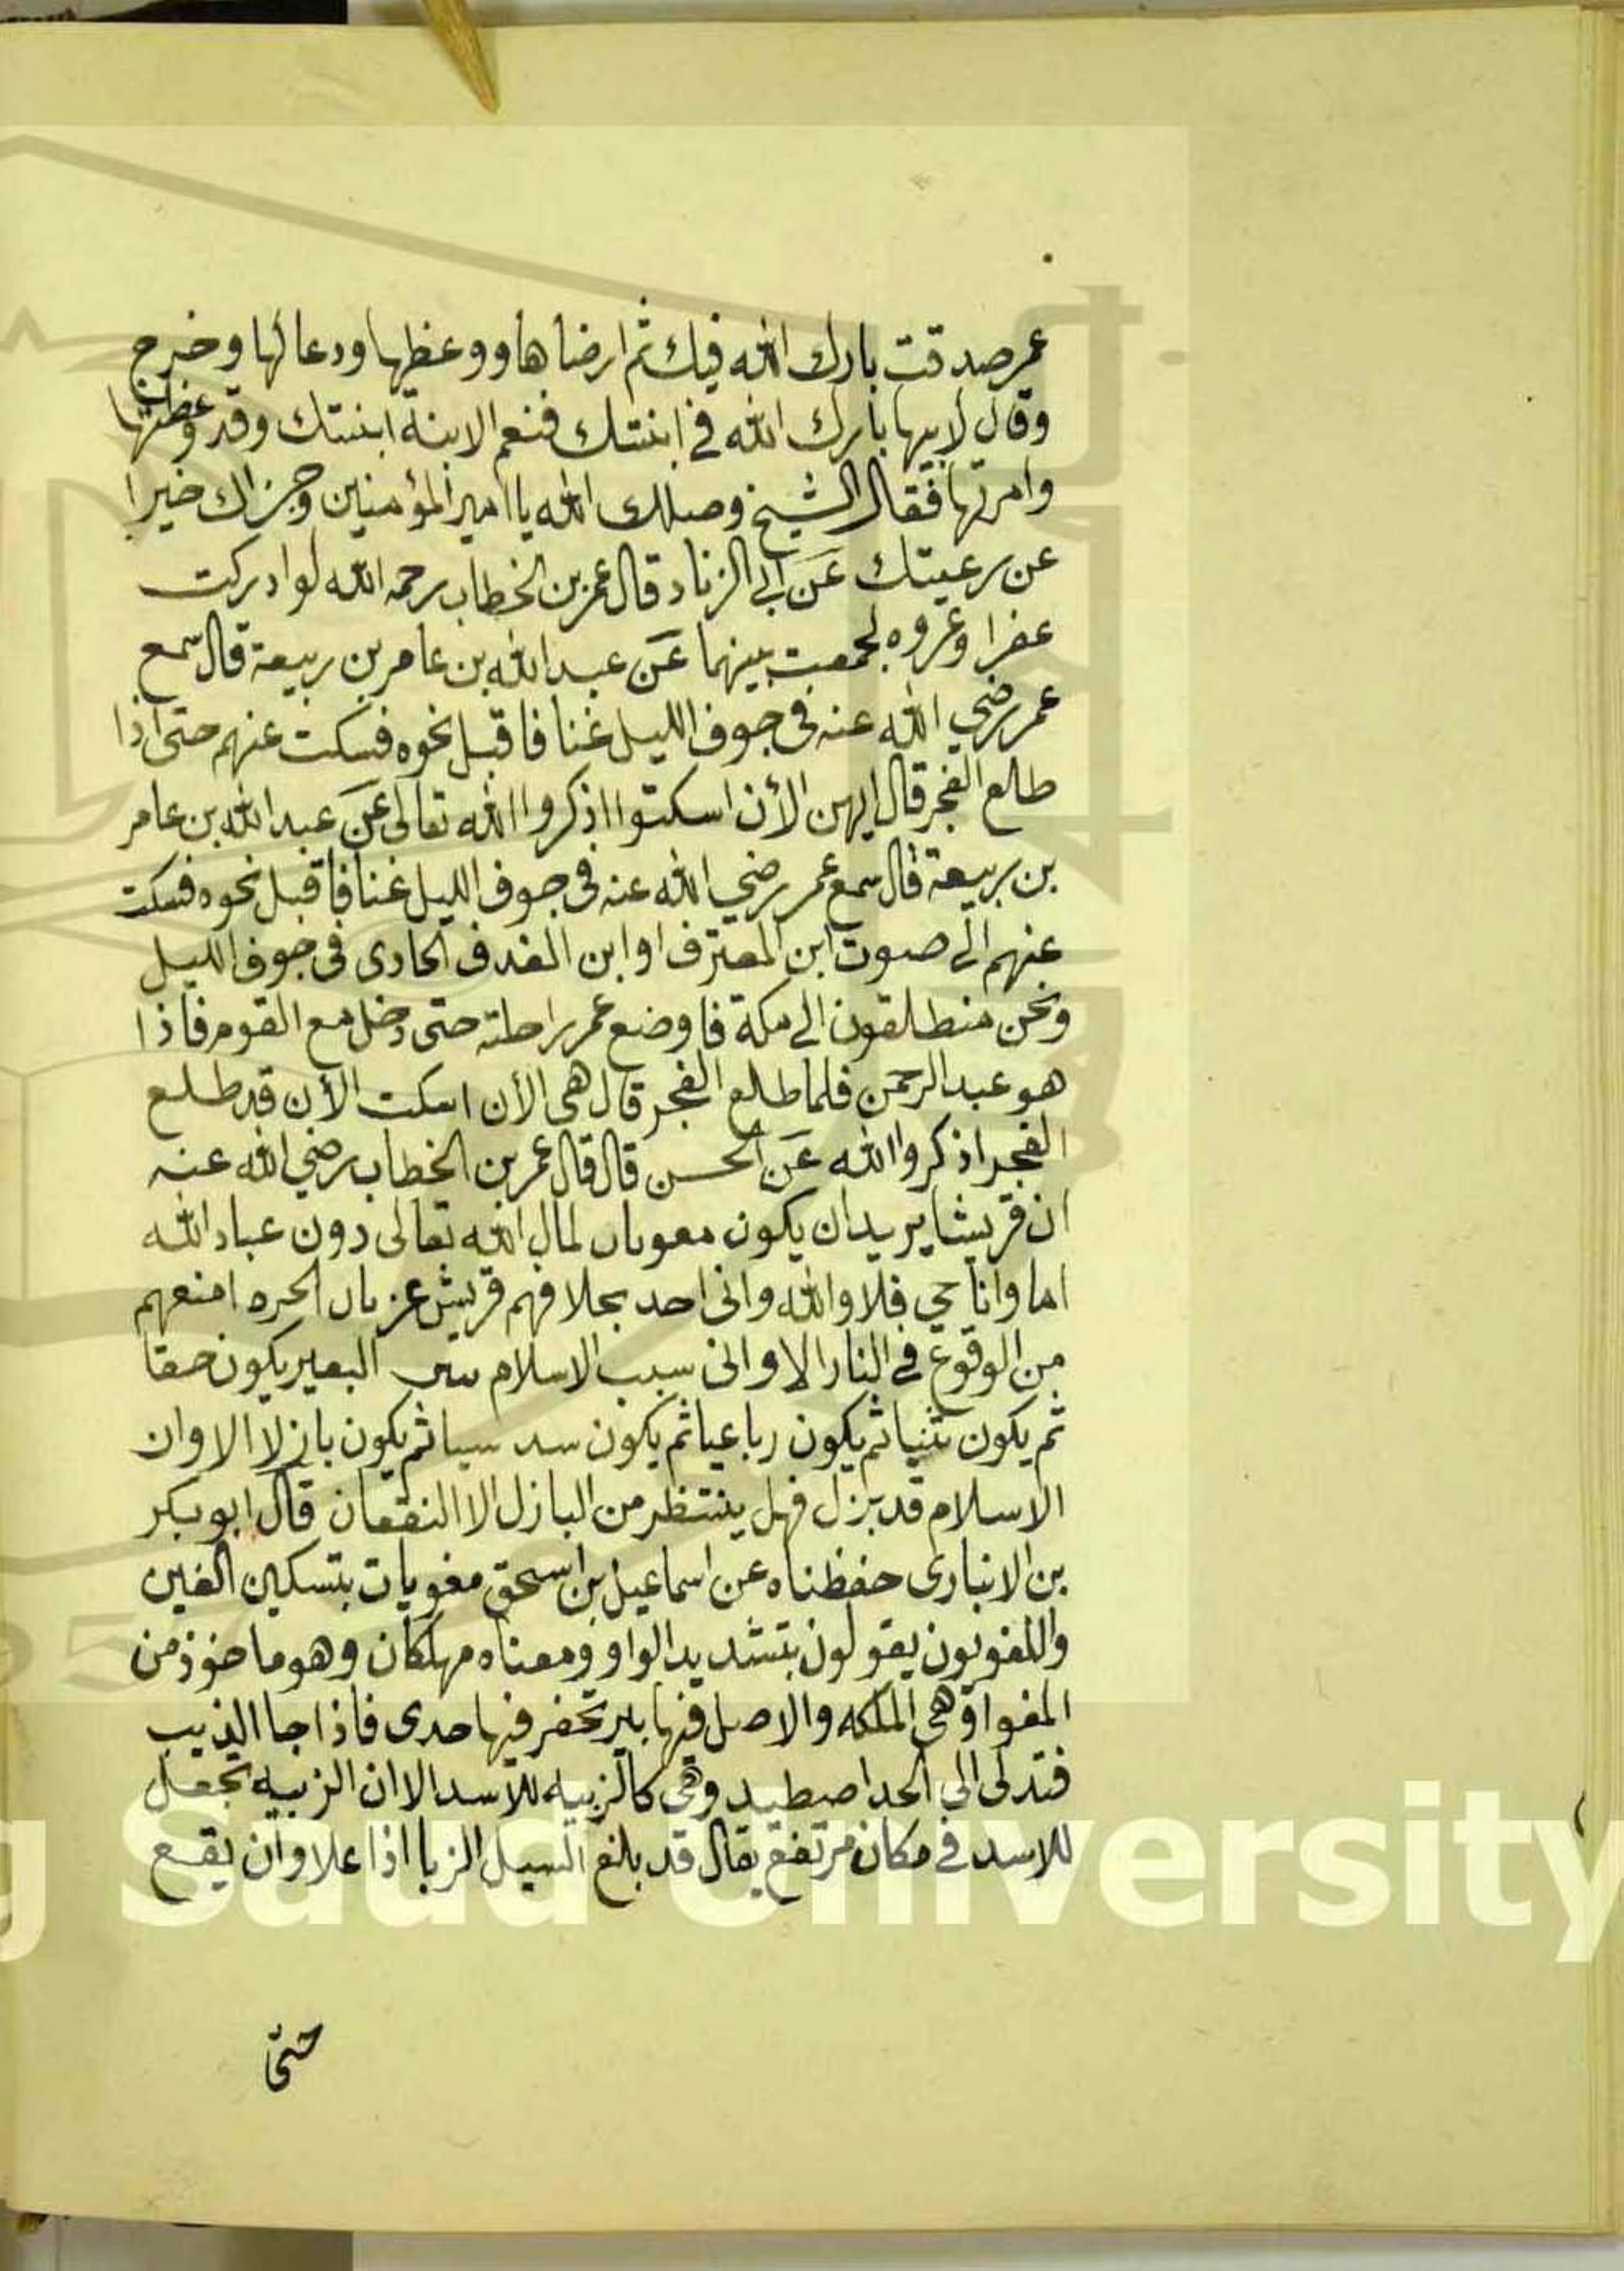 عمر صدقت بارك الله فيك ثم ارضاها ووعظها ودعا لها وخرج
وقال لابيها بارك الله في ابنتك فنعم الابنة ابنتك وقد وعظتها
وامرتها فقال الشيخ وصلك الله يا امير المؤمنين وجزاك خيرا
عن رعيتك عن ابي الزناد قال عمر بن الخطاب رحمه الله لو ادركت
عفرا وعروه لجمعت بينهما عن عبد الله بن عامر بن ربيعة قال سمع
عمر رضي الله عنه في جوف الليل غنا فاقبل نحوه فسكت عنهم حتى اذا
طلع الفجر قال ايهن الأن اسكتوا اذكروا الله تعالى عن عبد الله بن عامر
بن ربيعة قال سمع عمر رضي الله عنه في جوف الليل غنا فاقبل نحوه فسكت
عنهم الى صوت ابن المعترف او ابن الغدف الحادى في جوف الليل
ونحن منطلقون الى مكة فاوضع عمر راحلته حتى دخل مع القوم فاذا
هو عبد الرحمن فلما طلع الفجر قال هى الأن اسكت الأن قد طلع
الفجر اذكروا الله عن الحسن قال قال عمر بن الخطاب رضي الله عنه
ان قريشا يريد ان يكون لمال الله تعالى دون عباد الله
اما وانا حي فلا والله وانى احد قريش الحره امنعهم
من الوقوع في النار الا وانى الاسلام البعير يكون حقا
ثم يكون ثنيا ثم يكون رباعيا ثم يكون سد سيا ثم يكون بازلا الا وان
الاسلام قد بزل فهل ينتظر من البازل الا النقصان قال ابو بكر
بن الانبارى حفظناه عن اسماعيل بن اسحق مغويات بتسكين الغين
واللغويون يقولون بتشديد الواو ومعناه مهلكان وهو ماخوذ من
المغواة وهى الملكه والاصل فيها بير تحفر فيها جدى فاذا جا الذيب
فتدلى الى الجدا صطيد وهى كالزبيه للاسد الا ان الزبيه تجعل
للاسد في مكان مرتفع يقال قد بلغ السيل الزبا اذا علا وان يقع
حتى
King Saud University